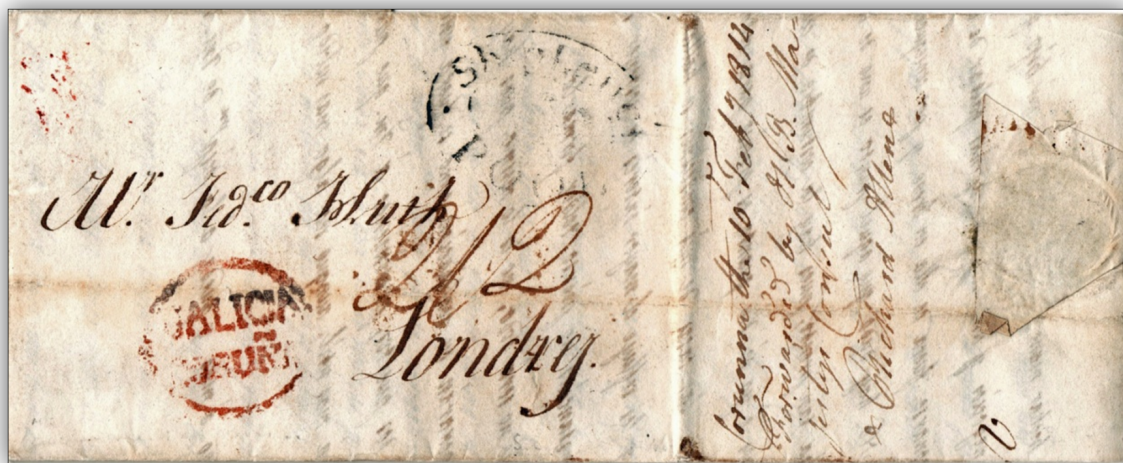 Mr. Fedco Huth
2/2
Londres.
GALICIA
CORUÑA
Corunna the 10 Feby 1814
Forwarded by H B. Ma-
jestys Consul
Richard Allen